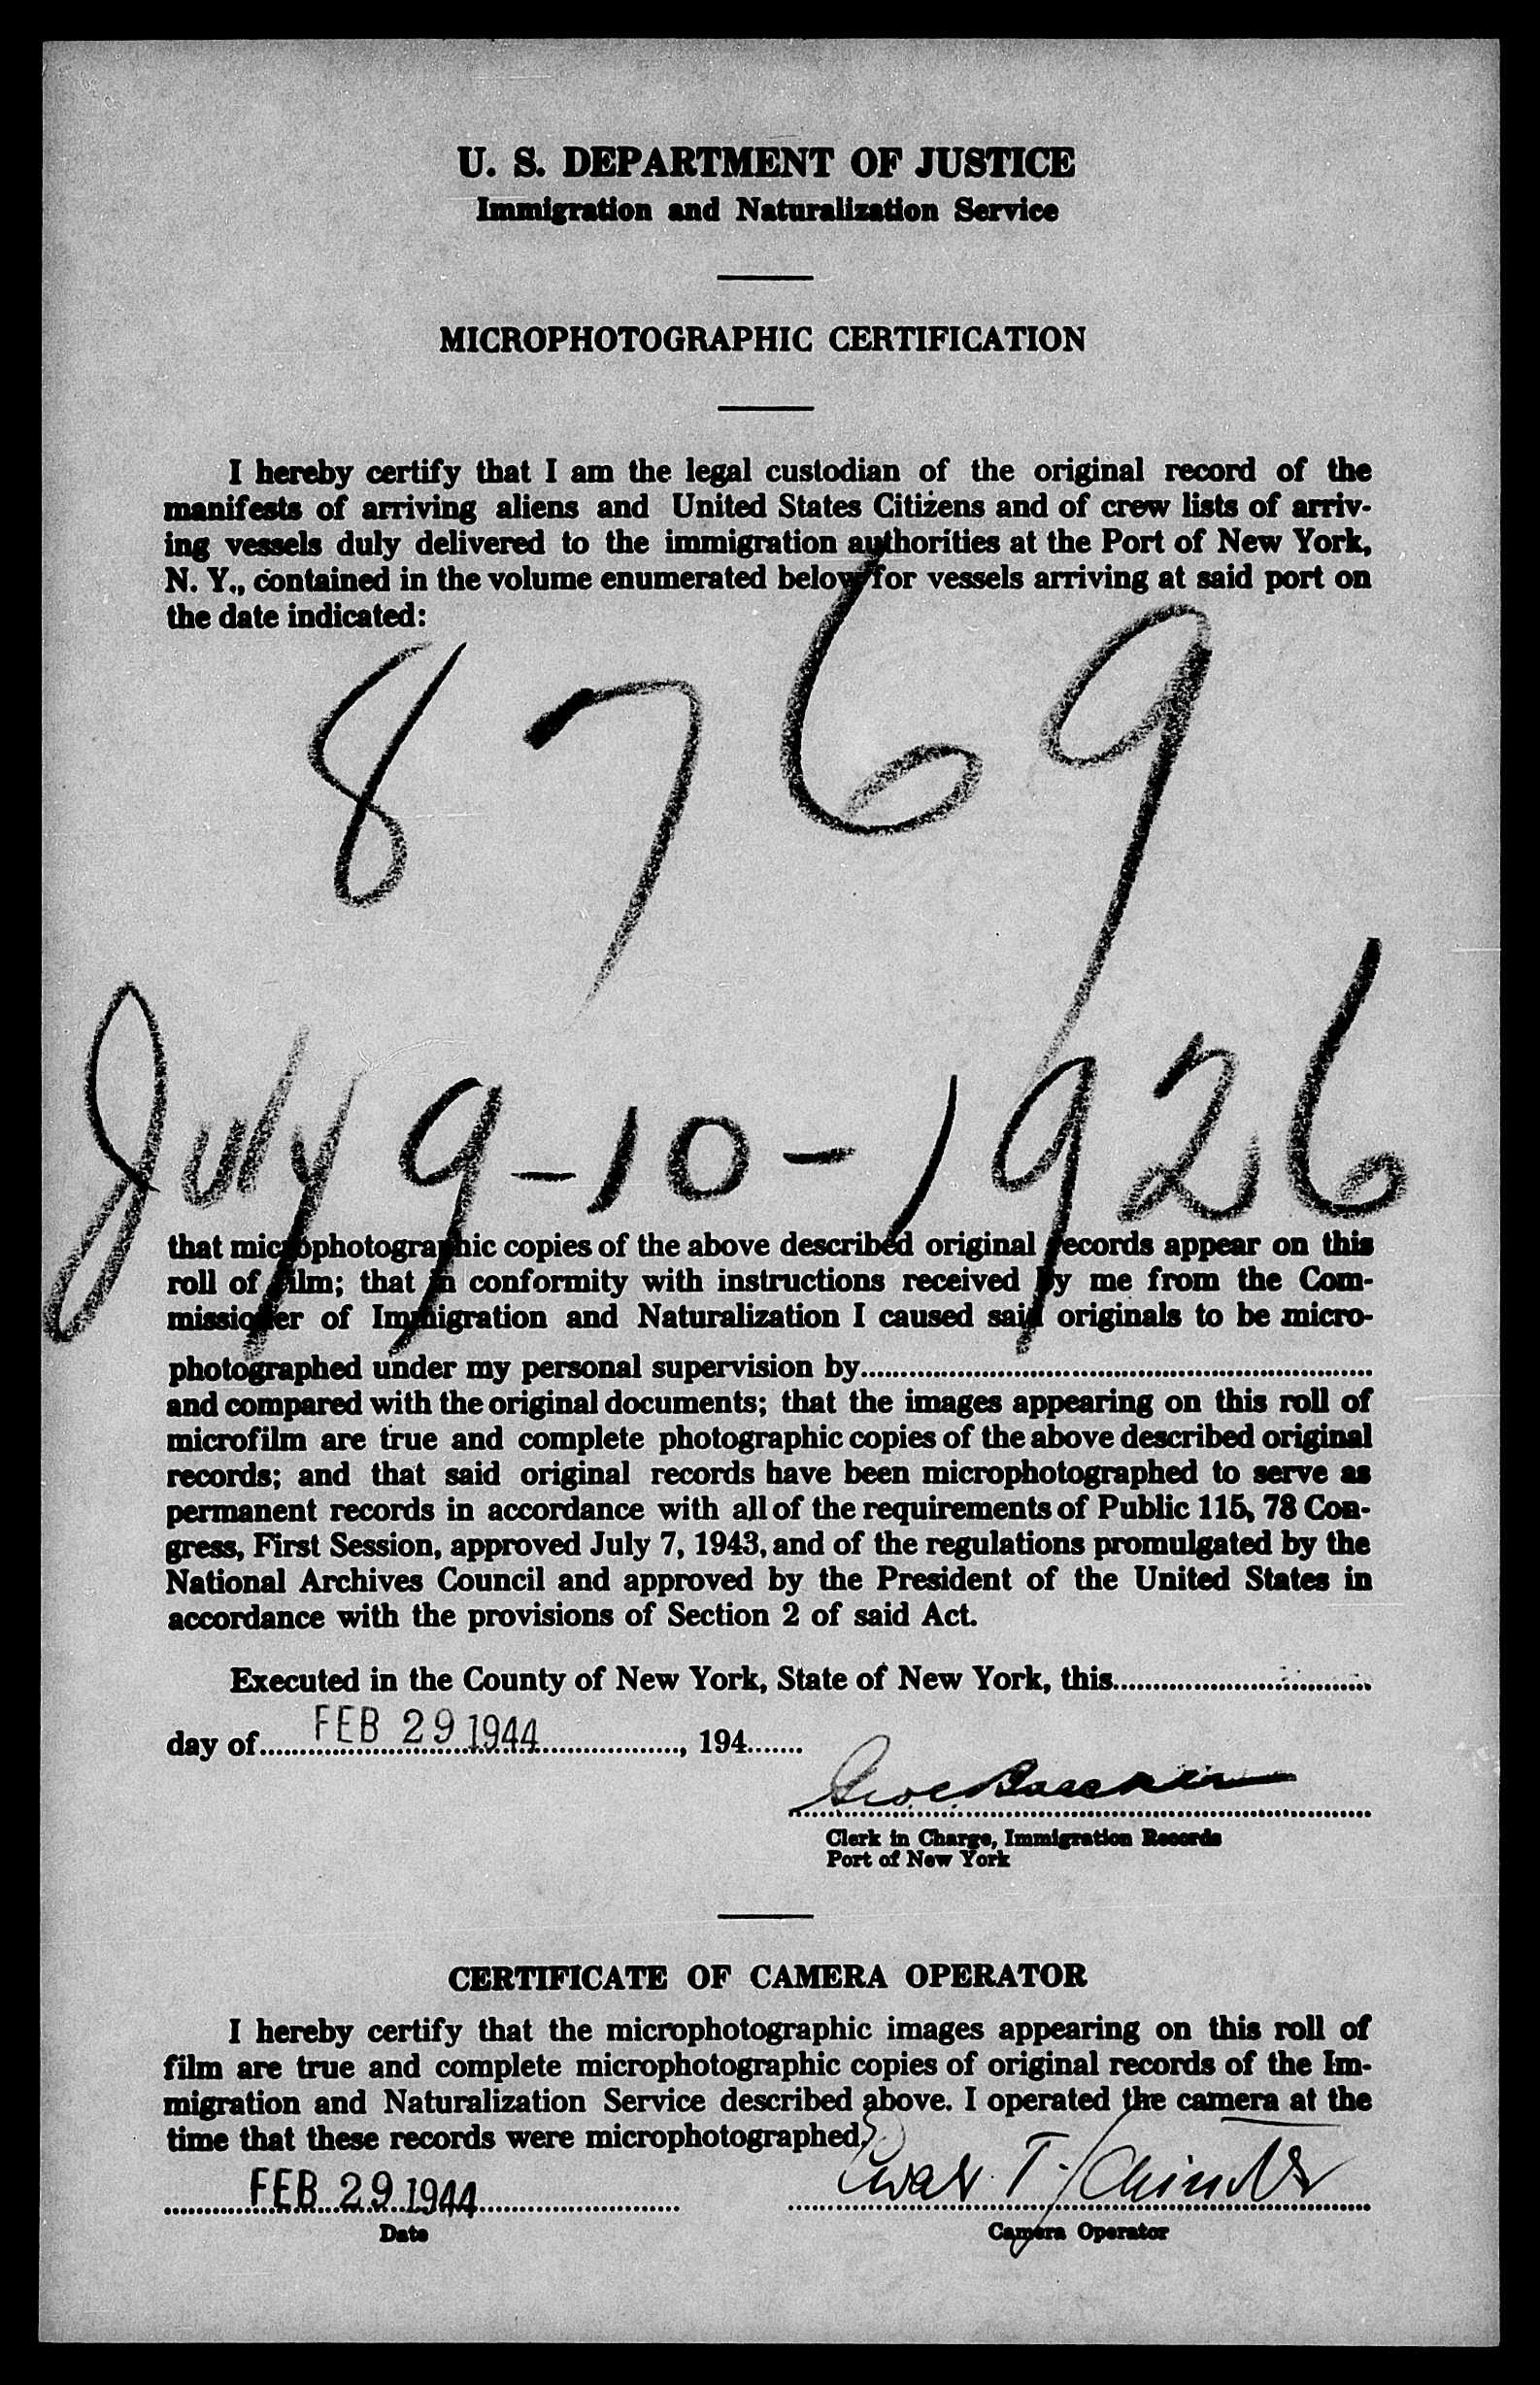 U. S. DEPARTMENT OF JUSTICE
Immigration and Naturalization Service
MICROPHOTOGRAPHIC CERTIFICATION
I hereby certify that I am the legal custodian of the original record of the
manifests of arriving aliens and United States Citizens and of crew lists of arriv-
ing vessels duly delivered to the immigration authorities at the Port of New York,
N. Y., contained in the volume enumerated below for vessels arriving at said port on
the date indicated:
8769
July 9-10-1926
that microphotographic copies of the above described original records appear on this
roll of film; that in conformity with instructions received by me from the Com-
missioner of Immigration and Naturalization I caused said originals to be micro-
photographed under my personal supervision by
and compared with the original documents; that the images appearing on this roll of
microfilm are true and complete photographic copies of the above described original
records; and that said original records have been microphotographed to serve as
permanent records in accordance with all of the requirements of Public 115, 78 Con-
gress, First Session, approved July 7, 1943, and of the regulations promulgated by the
National Archives Council and approved by the President of the United States in
accordance with the provisions of Section 2 of said Act.
Executed in the County of New York, State of New York, this
day of FEB 29 1944, 194
Clerk in Charge, Immigration Records
Port of New York
CERTIFICATE OF CAMERA OPERATOR
I hereby certify that the microphotographic images appearing on this roll of
film are true and complete microphotographic copies of original records of the Im-
migration and Naturalization Service described above. I operated the camera at the
time that these records were microphotographed.
FEB 29 1944
Date
Camera Operator